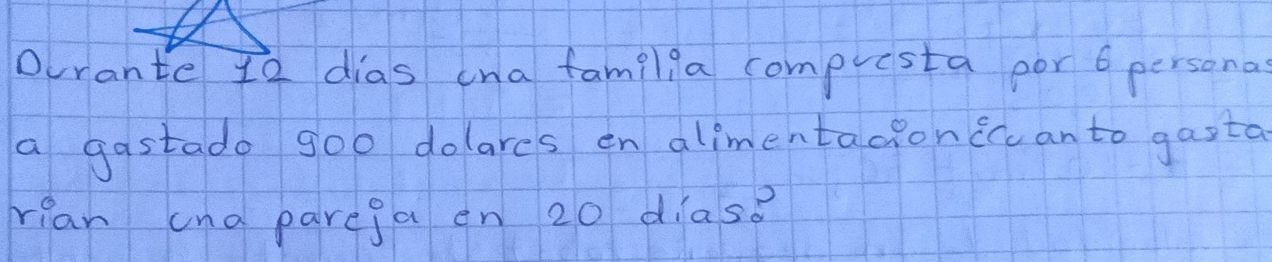 Durante 12 dias una familia compuesta por 6 personas
a gastado 900 dolares en alimentacion ¿cuanto gasta
rian una pareja en 20 dias?